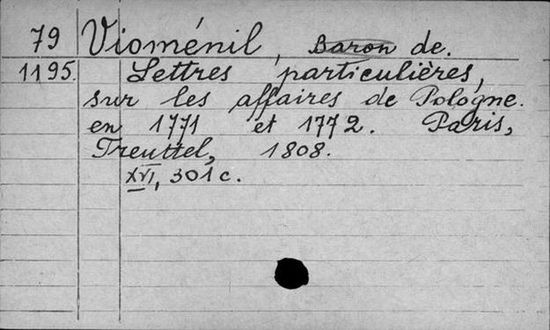 79 Vioménil, Baron de.
1195. Lettres particulières,
sur les affaires de Pologne.
en 1771 et 1772. Paris,
Treuttel, 1808.
XVI, 301 c.